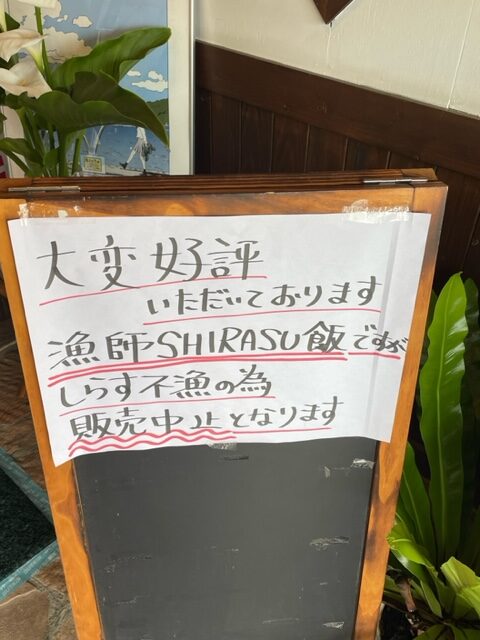 大変好評
いただいております
漁師SHIRASU飯ですが
しらす不漁の為
販売中止となります